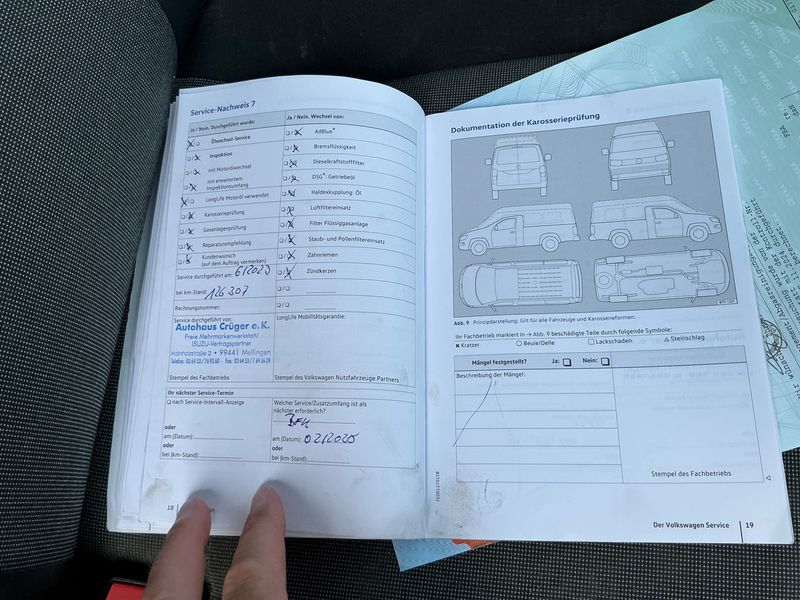 Service-Nachweis 7
Ja / Nein. Durchgeführt wurde:
Ölwechsel-Service
Inspektion
mit Motorölwechsel
mit erweitertem
Inspektionsumfang
LongLife Motoröl verwendet
Karosserieprüfung
Gasanlagenprüfung
Reparaturempfehlung
Kundenwunsch
(auf dem Auftrag vermerken)
Service durchgeführt am: 6/2023
bei km-Stand: 126 307
Rechnungsnummer:
Service durchgeführt von:
Autohaus Crüger e.K.
Freie Mehrmarkenwerkstatt/
ISUZU-Vertragspartner
Hainholzstraße 2 • 99441 Mellingen
Stempel des Fachbetriebs
Ja / Nein. Wechsel von:
AdBlue®
Bremsflüssigkeit
Dieselkraftstofffilter
DSG®: Getriebeöl
Haldexkupplung: Öl
Luftfiltereinsatz
Filter Flüssiggasanlage
Staub- und Pollenfiltereinsatz
Zahnriemen
Zündkerzen
LongLife Mobilitätsgarantie:
Stempel des Volkswagen Nutzfahrzeuge Partners
Ihr nächster Service-Termin
nach Service-Intervall-Anzeige
oder
am (Datum):
oder
bei (km-Stand)
Welcher Service/Zusatzumfang ist als
nächster erforderlich?
BFW
am (Datum): 02/2025
oder
bei (km-Stand)
18
Dokumentation der Karosserieprüfung
Abb. 9 Prinzipdarstellung: Gilt für alle Fahrzeuge und Karosserieformen.
Ihr Fachbetrieb markiert in → Abb. 9 beschädigte Teile durch folgende Symbole:
Kratzer
Beule/Delle
Lackschaden
Steinschlag
Mängel festgestellt? Ja: Nein:
Beschreibung der Mängel:
Stempel des Fachbetriebs
Der Volkswagen Service 19
DEKRA